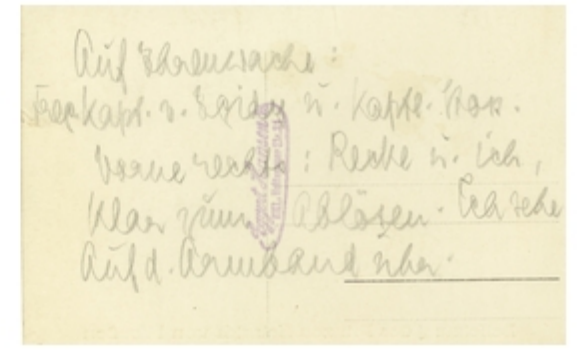 Auf Ehrenwache:
Kapt. v. Egidy u. Kaptl.
Vorne rechts: Recke u. ich,
klar zum Ablösen. Ich sehe
auf d. Armband uhr.